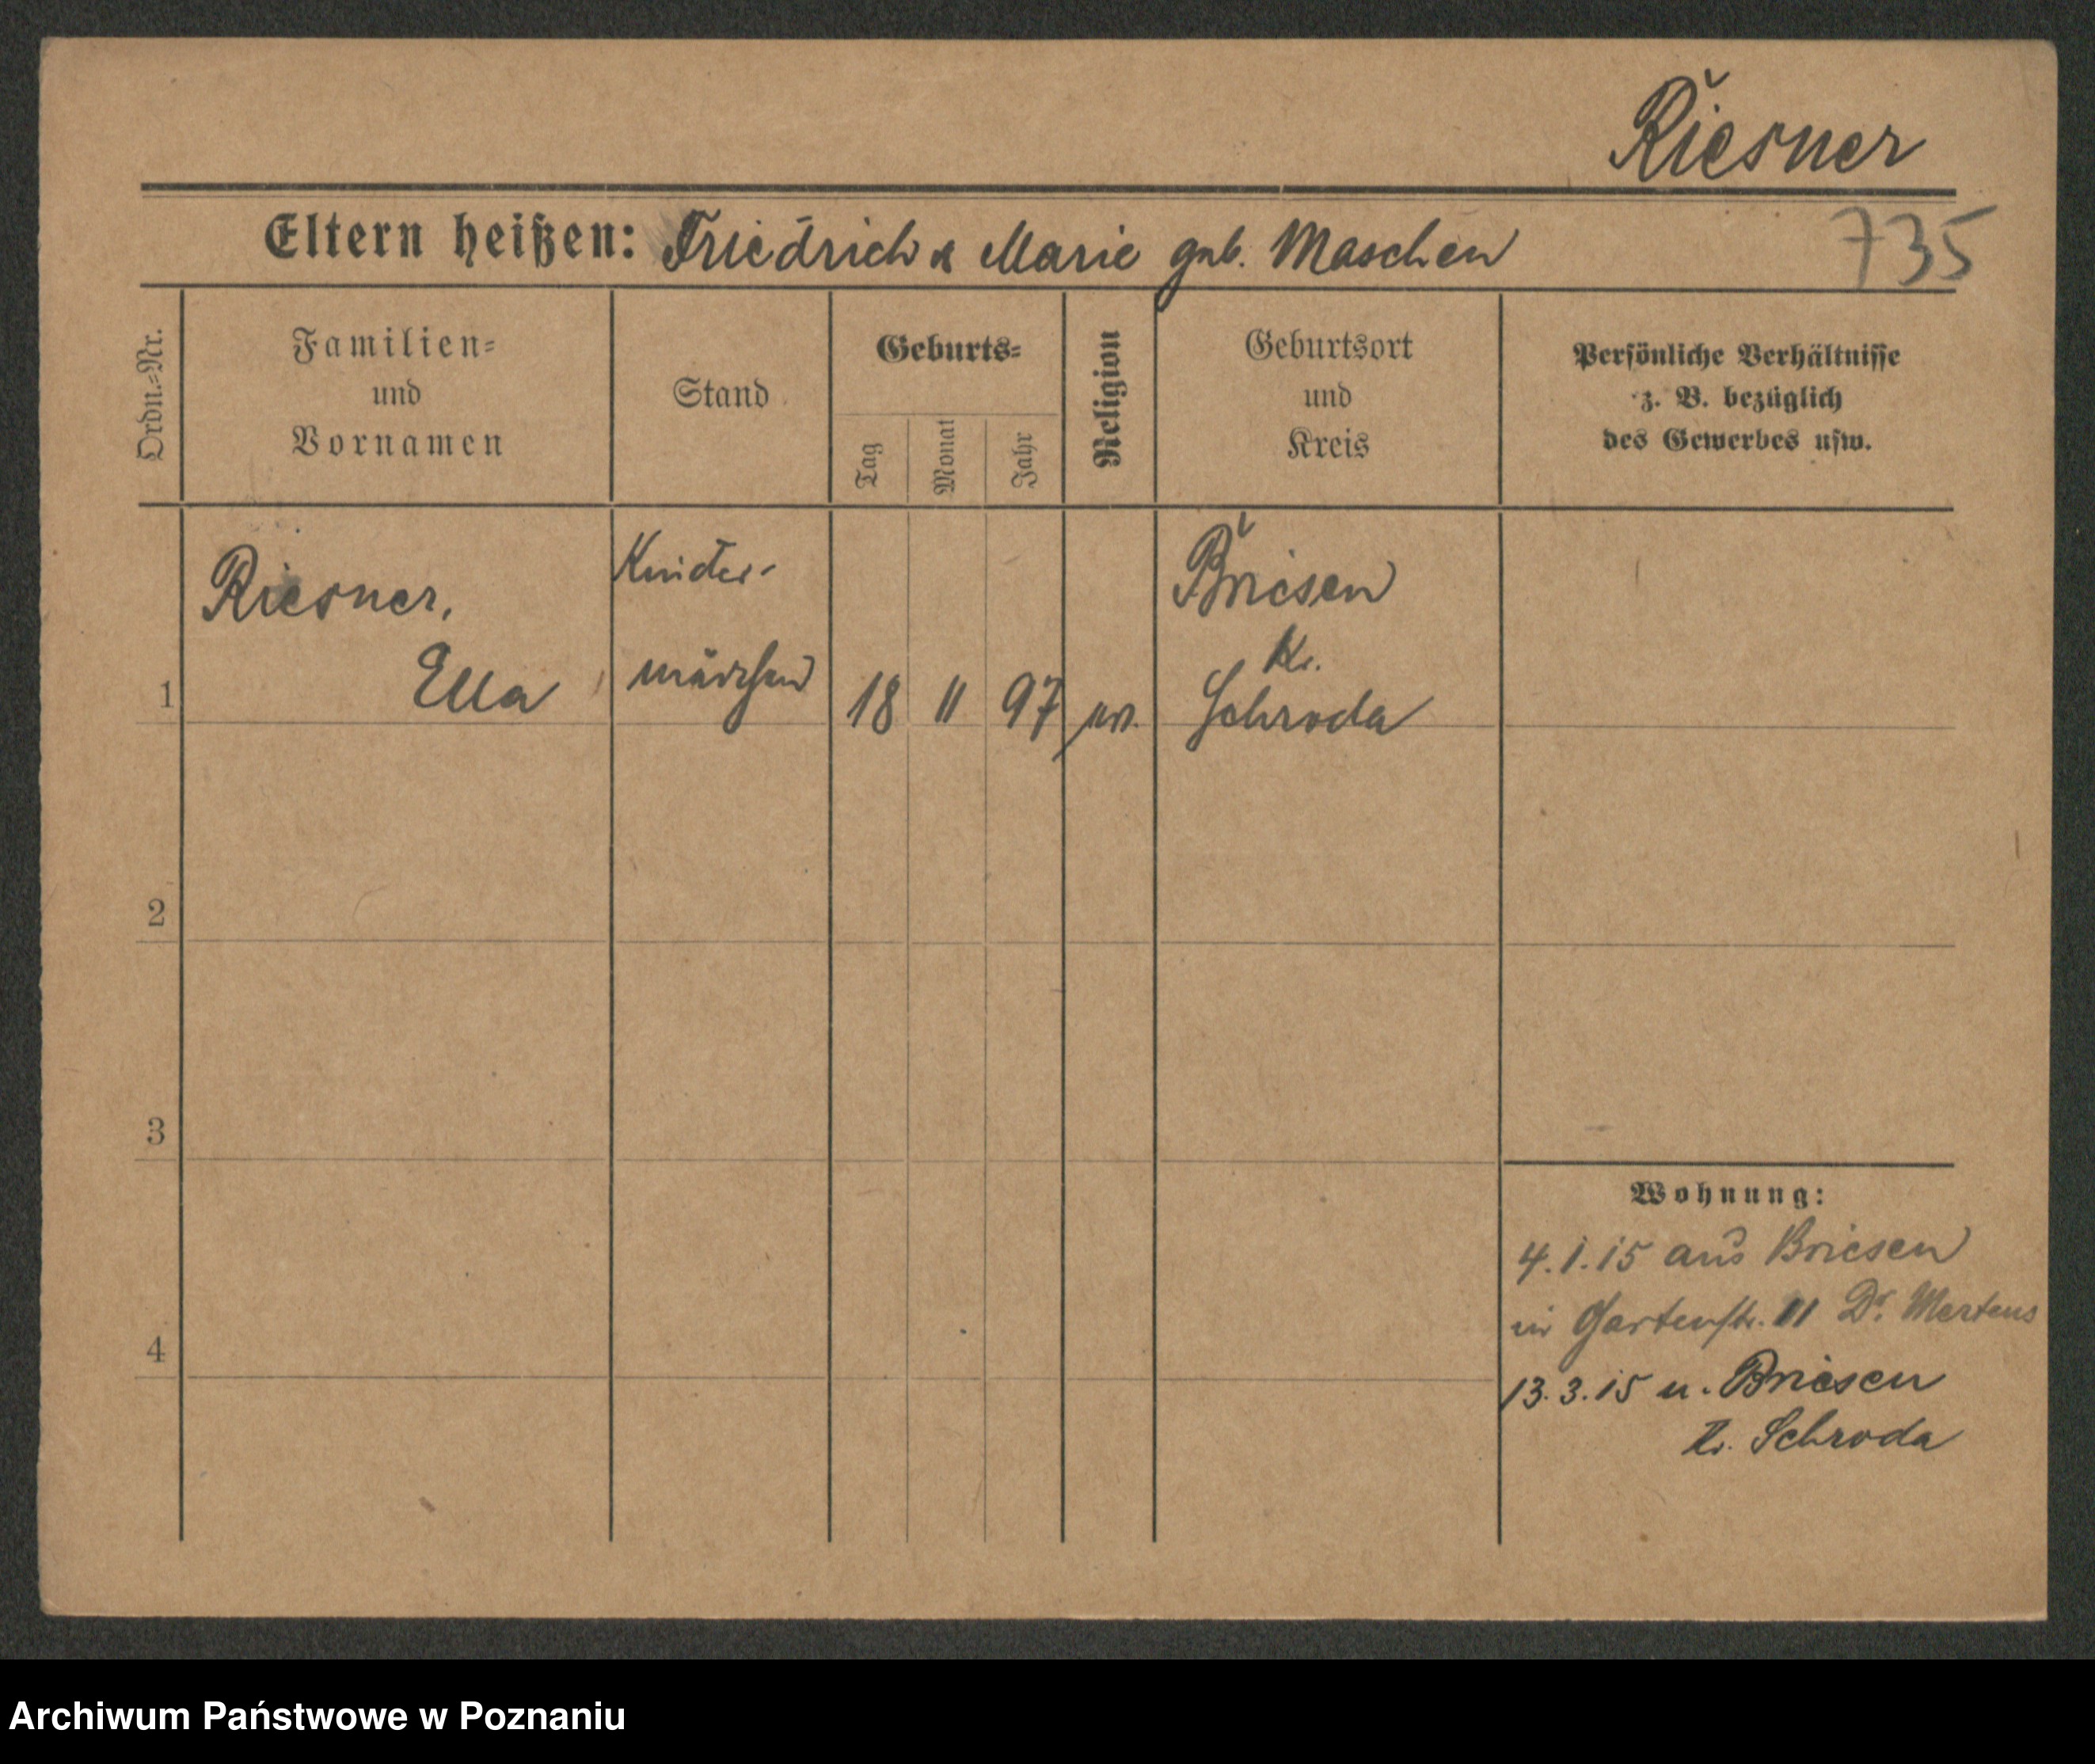 Riesner
Eltern heißen: Friedrich & Marie geb. Maschen
735
Ordn.=Nr.
Familien=
und
Vornamen
Stand
Geburts=
Tag
Monat
Jahr
Religion
Geburtsort
und
Kreis
Persönliche Verhältnisse
z. B. bezüglich
des Gewerbes usw.
Riesner,
Ella
Kinder-
mädchen
1
18
11
97
ev.
Briesen
Kr.
Schroda
2
3
4
Wohnung:
4.1.15 aus Briesen
in Gartenstr. 11 Dr. Mertens
13.3.15 n. Briesen
Kr. Schroda
Archiwum Państwowe w Poznaniu